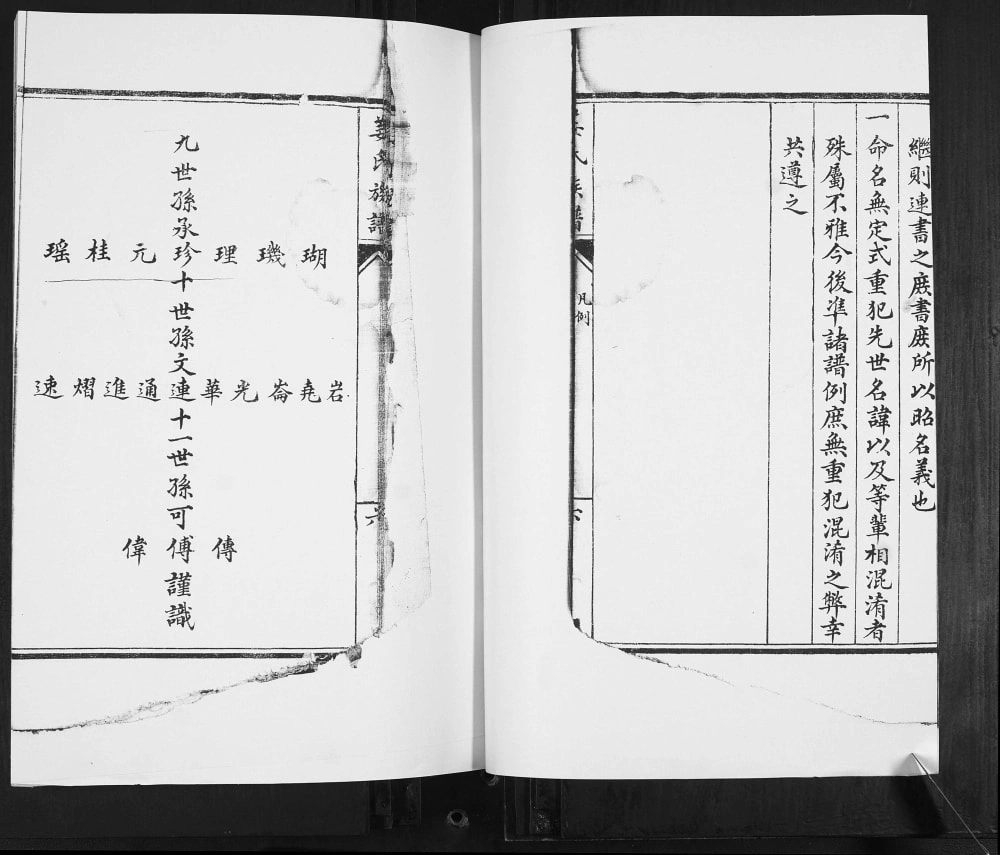 繼則連書之庶書庶所以昭名義也
一命名無定式重犯先世名諱以及等輩相混淆者
殊屬不雅今後準諸譜例庶無重犯混淆之弊幸
共遵之
氏族譜
凡例
六
姜氏族譜
六
九世孫承
瑚 璣 理 珍 元 桂 瑶
十世孫文
岩 尭 崙 光 華 連 通 進 熠 速
十一世孫可
傳 傅 偉
謹識